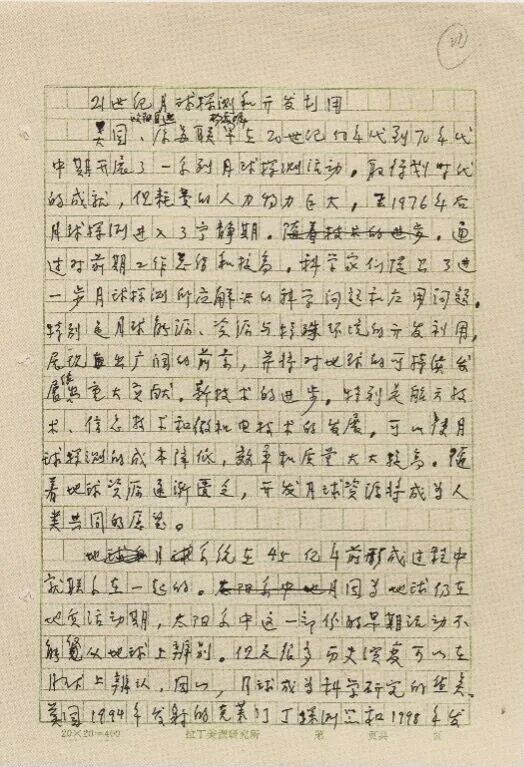 21世纪月球探测和开发利用
美国、原苏联早在20世纪50年代到70年代
中期开展了一系列月球探测活动。取得划时代
的成就，但耗费的人力物力巨大，至1976年后
月球探测进入了宁静期。随着技术的进步，通
过对前期工作总结和提高，科学家们提出了进
一步月球探测所应解决的科学问题和应用问题。
特别是月球能源、资源与特殊环境的开发利用，
展现出广阔的前景，并将对地球的可持续发
展做出重大贡献。新技术的进步，特别是航天技
术、信息技术和微机电技术的发展，可以使月
球探测的成本降低，效率和质量大大提高。随
着地球资源逐渐匮乏，开发月球资源将成为人
类共同的愿望。
地球月球系统在45亿年前形成过程中
就联系在一起的。太阳系中地月因为地球仍在
地质活动期，太阳系中这一部份的早期活动不
能从地球上辨别。但是很多历史演变可以在
月球上辨认，因此，月球成为科学研究的焦点。
美国1994年发射的克莱门汀探测器和1998年发
20×20=400
第 页共 页